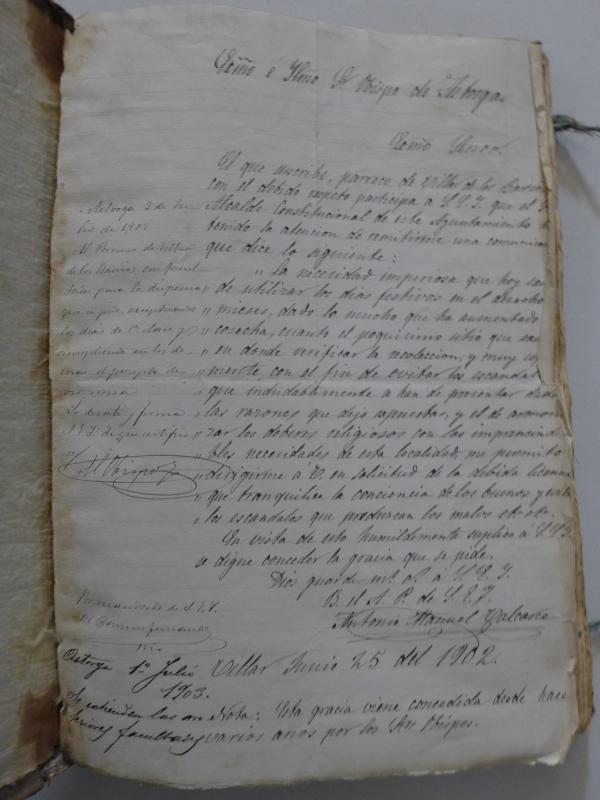 Exmo é Ilmo Sr Obispo de Astorga.
Exmo Señor.
El que suscribe, parroco de Villar de los Barrios
con el debido respeto participa á S.E.I. que el S
Alcalde Constitucional de este Ayuntamiento h
tenido la atencion de remitirme una comunica
que dice lo siguiente:
" La necesidad imperiosa que hoy
" de utilizar los dias festivos en el acarreo
" mieses, dado lo mucho que ha aumentado
" cosecha, cuanto el poquisimo sitio que
" en donde verificar la recoleccion, y muy
" mente con el fin de evitar los escandal
" que indudablemente se han de presentar dada
" las razones que dejo espuestas, y el de armoni
" zar los deberes religiosos con las imprescindi
" bles necesidades de esta localidad, me permito
" dirigirme á V. en solicitud de la debida licencia
" que tranquilice la conciencia de los buenos y evite
" los escandalos que produzcan los malos etc. etc.
En vista de esto humildemente suplico á S.E.I.
se digne conceder la gracia que se pide.
Dios guarde ms. as. á S.E.I.
B. el A. P. de S.E.I.
Antonio Manuel Valcarce
Villar Junio 25 del 1902.
Nota: Esta gracia viene concedida desde hace
varios años por los Sres Obispos.
Astorga 2 de Ju-
lio de 1902
de los Barrios con facul
tades para la dispensa
que se pide exceptuando
los dias de 1ª clase y
cumpliendo en los de-
mas el precepto de
oir misa.
Lo decretó y firma
S.E.I. de que certifico
El Obispo
Por mandado de S.E.I.
Astorga 1º Julio
1903.
Se estienden las an
teriores facultades